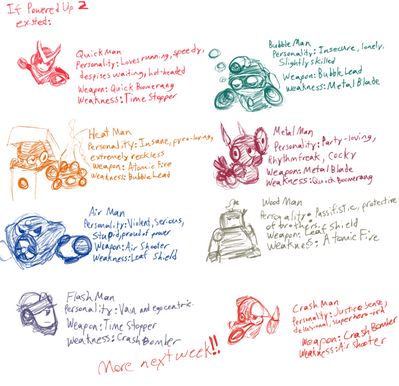 If Powered Up 2
existed:
QuickMan
Personality: Loves running, speedy,
despises waiting, hot-headed
Weapon: Quick Boomerang
Weakness: Time Stopper
Bubble Man
Personality: Insecure, lonely,
Slightly skilled
Weapon: Bubble Lead
Weakness: Metal Blade
Heat Man
Personality: Insane, pyro-loving,
extremely reckless
Weapon: Atomic Fire
Weakness: Bubble Lead
Metal Man
Personality: Party-loving,
Rhythm freak, Cocky
Weapon: Metal Blade
Weakness: Quick Boomerang
Air Man
Personality: Violent, serious,
Stupid, proud of power
Weapon: Air Shooter
Weakness: Leaf Shield
Wood Man
Personality: Passifistic, protective
of brothers.
Weapon: Leaf Shield
Weakness: Atomic Fire
Flash Man
Personality: Vain and egocentric.
Weapon: Time Stopper
Weakness: Crash Bomber
Crash Man
Personality: Justice
delusional, superhero-
Weapon: Crash Bomber
Weakness: Air shooter
More next week!!